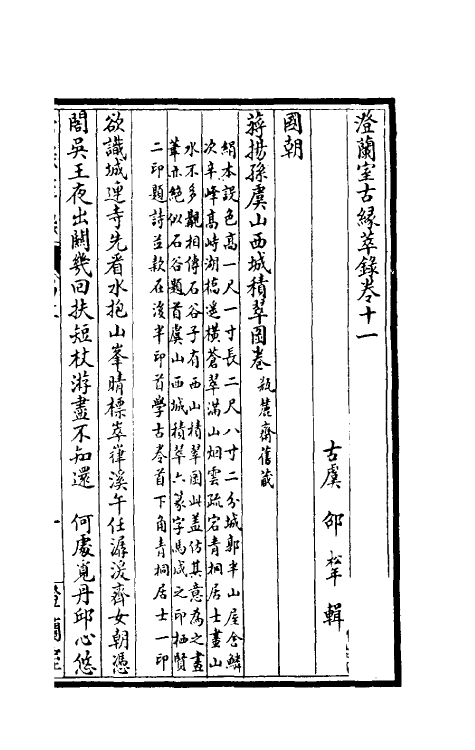 澄蘭室古緣萃錄卷十一
古虞 邵 松年 輯
國朝
蔣揚孫虞山西城積翠圖卷 瓶麓齋舊藏
絹本設色高一尺一寸長二尺八寸二分城郭半山屋舍鱗
次辛峰高峙湖橋遥橫蒼翠滿山烟雲疏宕青桐居士畫山
水不多覯相傳石谷子有西山積翠圖此葢仿其意為之畫
葦亦絶似石谷題首虞山西城積翠六篆字馮咸之印栖賢
二印題詩并款在後半印首學古卷首下角青桐居士一印
欲識城連寺先看水抱山峯晴標崒嵂溪午任潺湲齊女朝憑
閣吳王夜出關幾回扶短杖游盡不知還 何處覓丹邱心悠
一
澄蘭室